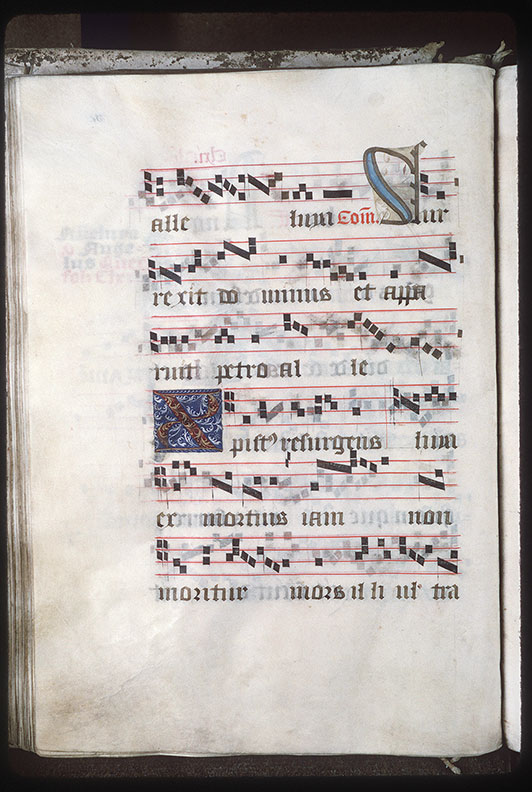 alle luya Com̄. Sur
rexit do minus et appa
ruit petro al le
Xpist⁹ resurgens luya
ex mortuis iam non
moritur mors il li ul tra